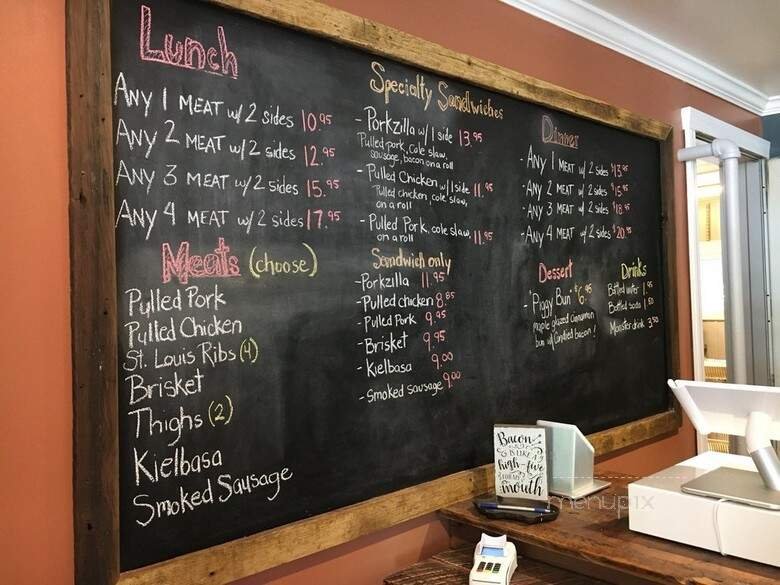 Lunch
Any 1 MEAT w/ 2 sides 10.95
Any 2 MEAT w/ 2 sides 12.95
Any 3 MEAT w/ 2 sides 15.95
Any 4 MEAT w/ 2 sides 17.95
Meats (choose)
Pulled Pork
Pulled Chicken
St. Louis Ribs (4)
Brisket
Thighs (2)
Kielbasa
Smoked Sausage
Specialty Sandwiches
- Porkzilla w/ 1 side 13.95
Pulled pork, cole slaw,
sausage, bacon on a roll
- Pulled Chicken w/ 1 side 11.95
Pulled chicken, cole slaw,
on a roll
- Pulled Pork, cole slaw, 11.95
on a roll
Sandwich only
- Porkzilla 11.95
- Pulled chicken 8.85
- Pulled Pork 9.95
- Brisket 9.95
- Kielbasa 9.00
- Smoked sausage 9.00
Dinner
- Any 1 MEAT w/ 2 sides $13.95
- Any 2 MEAT w/ 2 sides $15.95
- Any 3 MEAT w/ 2 sides $18.95
- Any 4 MEAT w/ 2 sides $20.95
Dessert
- "Piggy Bun" $6.95
maple glazed cinnamon
bun w/ candied bacon!
Drinks
Bottled water 1.95
Bottled soda 1.50
Monster drink 3.50
Bacon
IS LIKE A
high-five
FOR MY
mouth
menupix